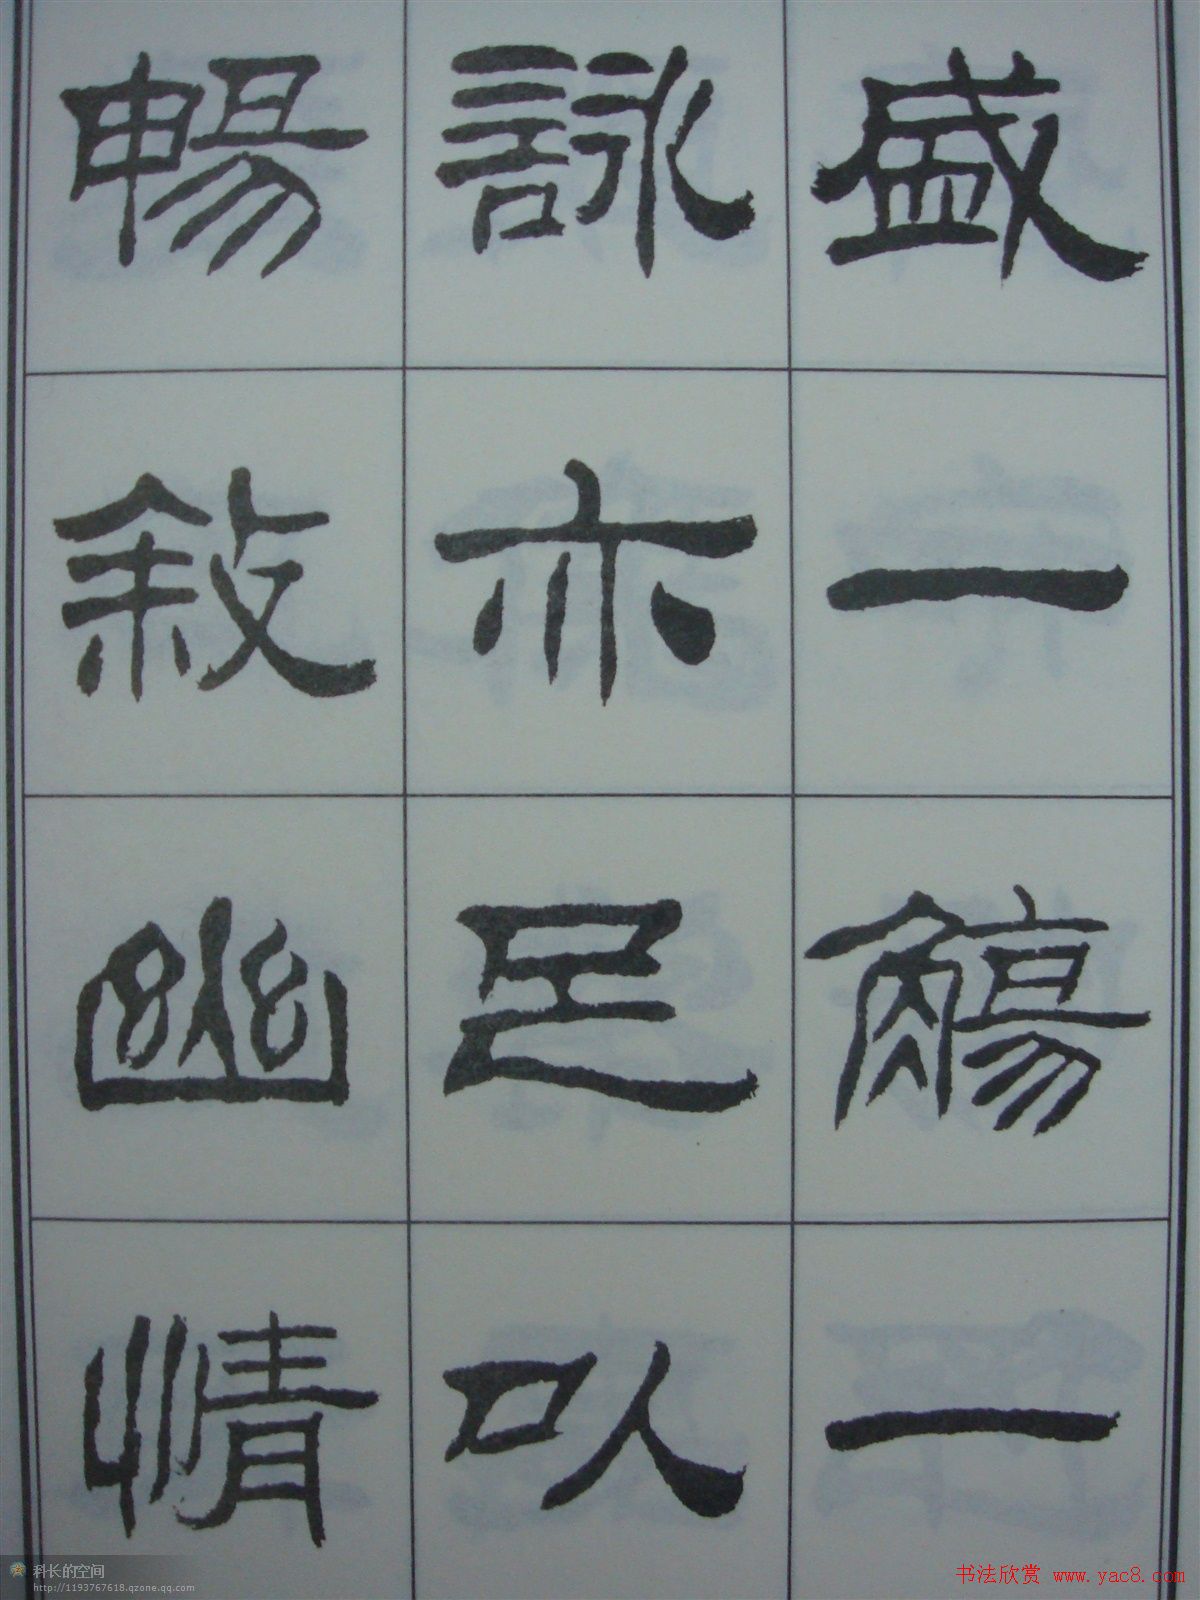 盛一觴一
詠亦足以
暢敘幽情
科长的空间
http://1193767618.qzone.qq.com
书法欣赏 www.yac8.com